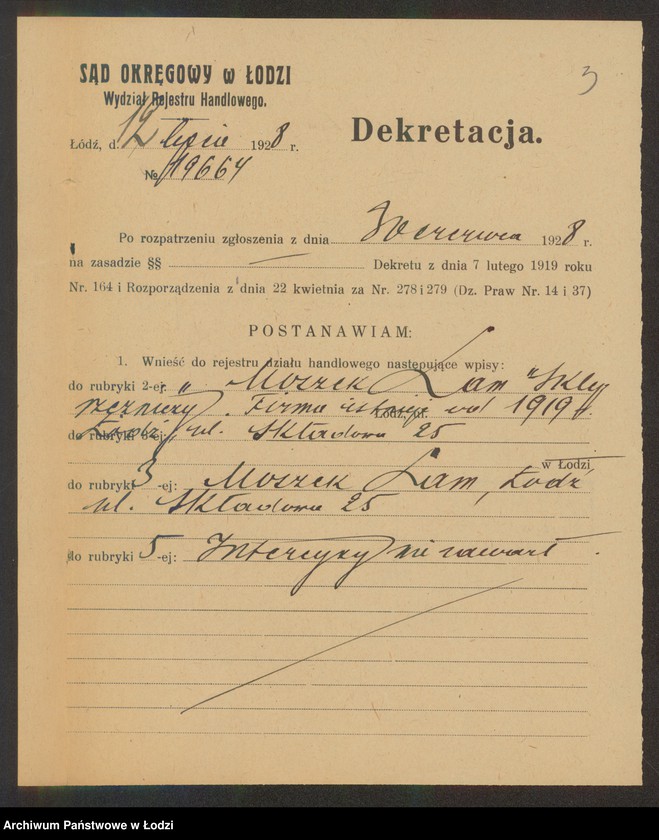 3
SĄD OKRĘGOWY w ŁODZI
Wydział Rejestru Handlowego.
Dekretacja.
Łódź, d. 12 lipca 1928 r.
№ 19664
Po rozpatrzeniu zgłoszenia z dnia 30 czerwca 1928 r.
na zasadzie §§ — Dekretu z dnia 7 lutego 1919 roku
Nr. 164 i Rozporządzenia z dnia 22 kwietnia za Nr. 278 i 279 (Dz. Praw Nr. 14 i 37)
POSTANAWIAM:
1. Wnieść do rejestru działu handlowego następujące wpisy:
do rubryki 2-ej: „Moszek Lam" Skle
rzeźniczy. Firma istnieje od 1919 r.
Łódź, ul. Składowa 25
w Łodzi
do rubryki 3-ej: Moszek Lam, Łódź
ul. Składowa 25
do rubryki 5-ej: Intercyzy nie zawarł.
Archiwum Państwowe w Łodzi